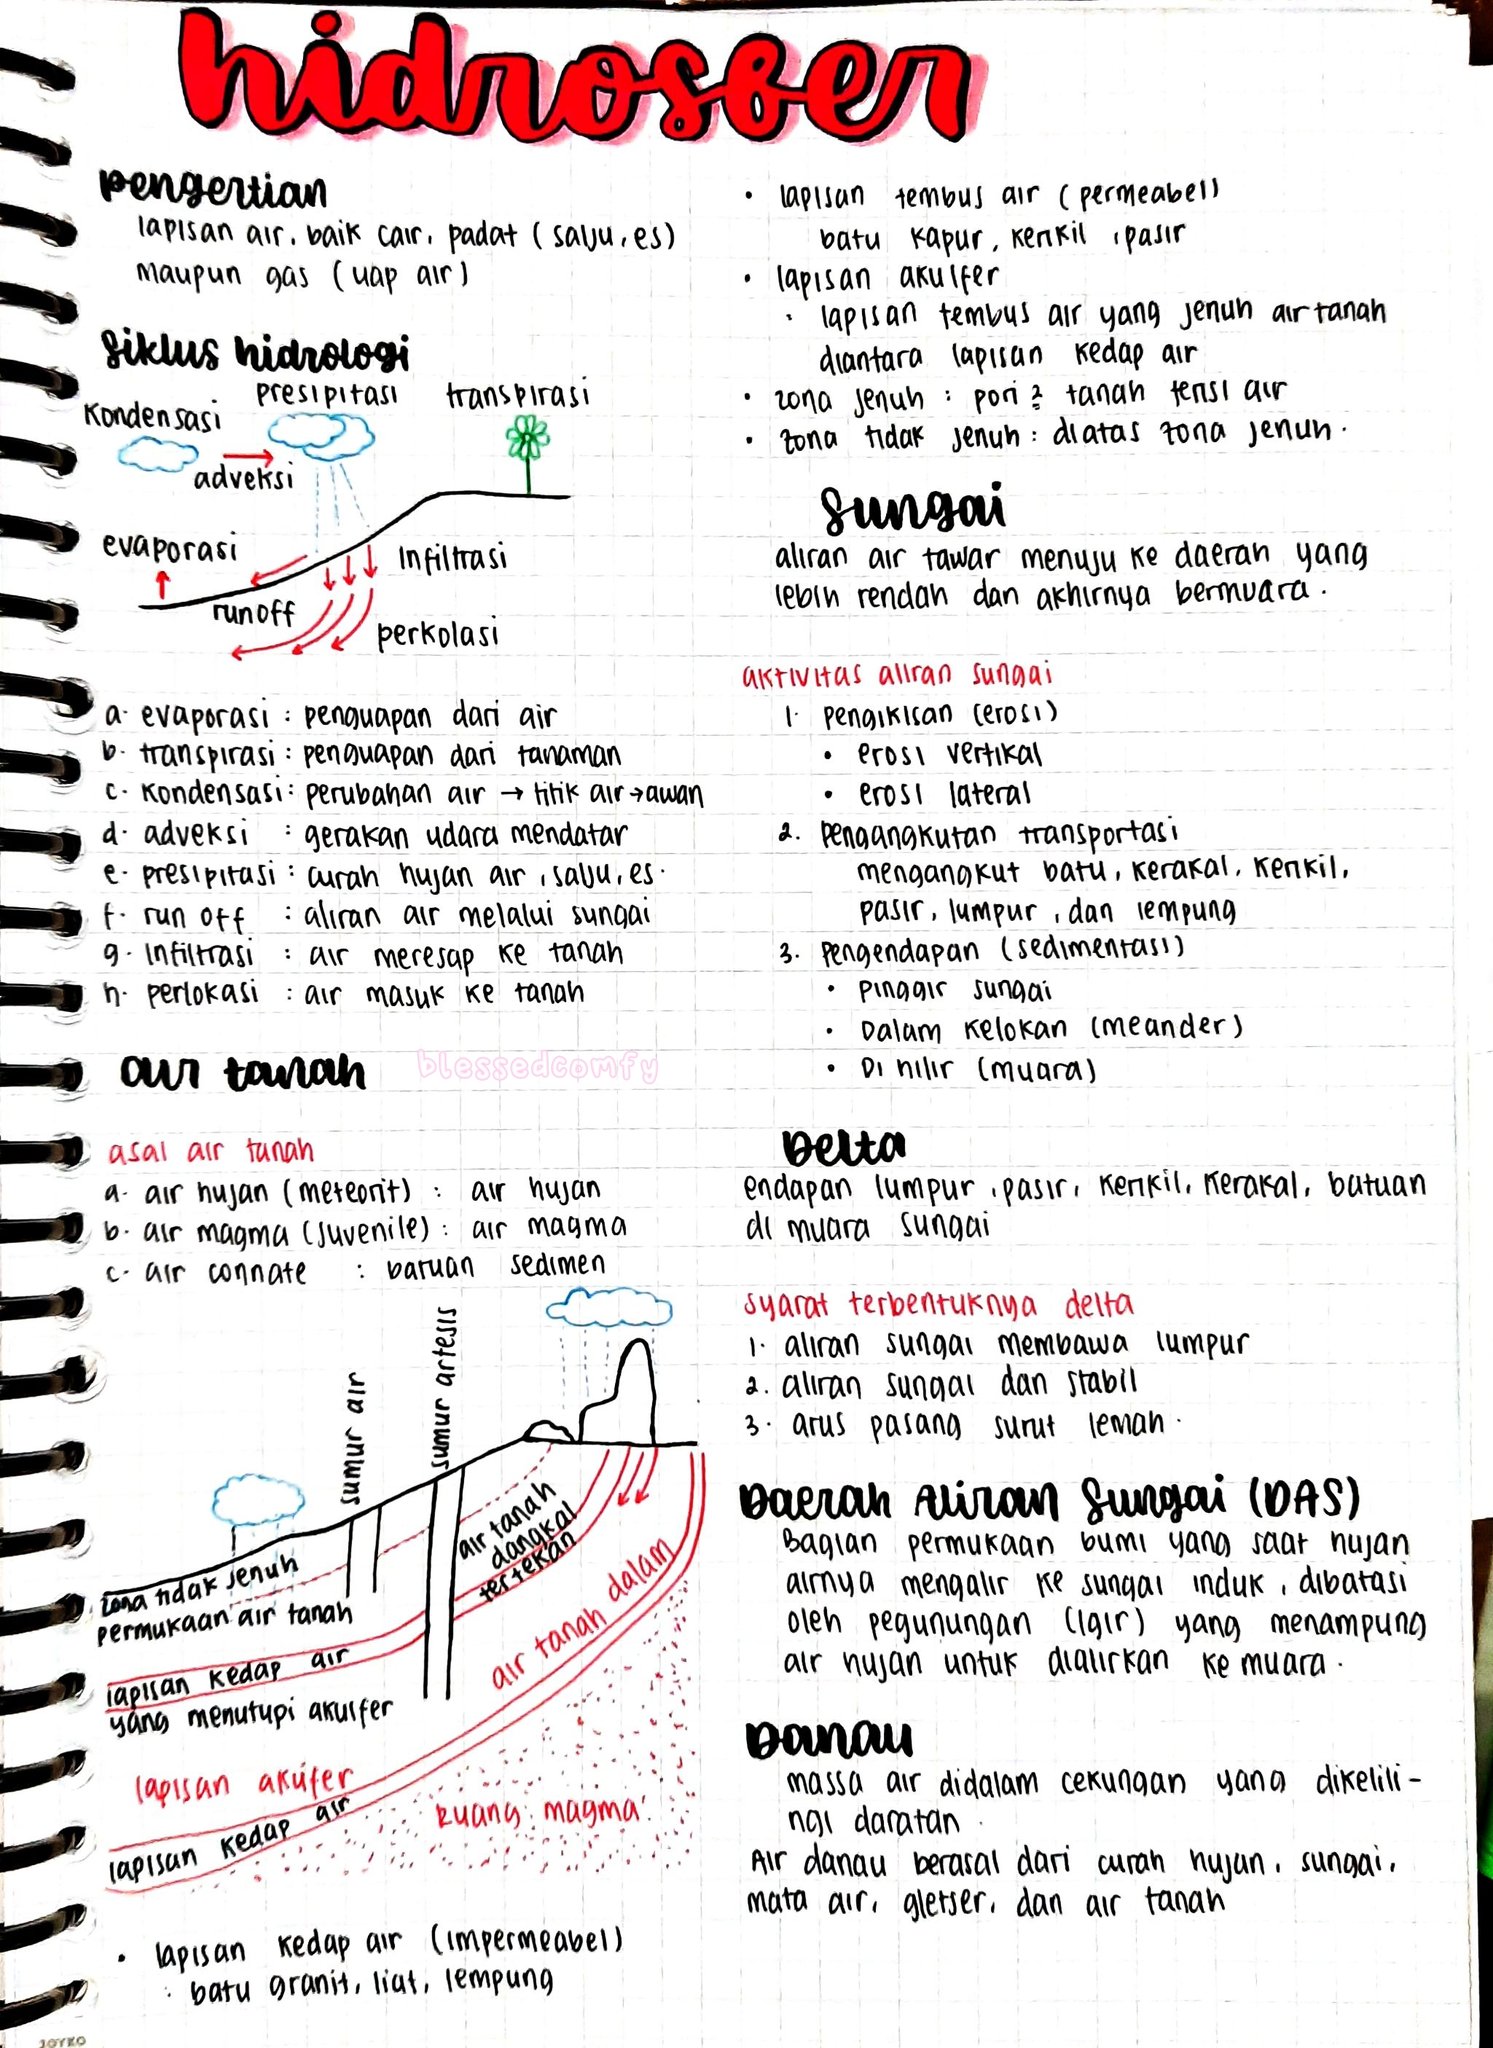 hidrosfer
pengertian
lapisan air, baik cair, padat (salju, es)
maupun gas (uap air)
Siklus hidrologi
presipitasi
transpirasi
kondensasi
adveksi
evaporasi
infiltrasi
runoff
perkolasi
a. evaporasi : penguapan dari air
b. transpirasi : penguapan dari tanaman
c. kondensasi : perubahan air → titik air → awan
d. adveksi : gerakan udara mendatar
e. presipitasi : curah hujan air, salju, es.
f. run off : aliran air melalui sungai
g. infiltrasi : air meresap ke tanah
h. perlokasi : air masuk ke tanah
air tanah
blessedcomfy
asal air tanah
a. air hujan (meteorit) : air hujan
b. air magma (juvenile) : air magma
c. air connate : batuan sedimen
sumur air
sumur artesis
zona tidak jenuh
permukaan air tanah
air tanah
dangkal
tertekan
lapisan kedap air
yang menutupi akuifer
air tanah dalam
lapisan akuifer
lapisan kedap air
ruang magma
• lapisan kedap air (impermeabel)
: batu granit, liat, lempung
JOYKO
• lapisan tembus air (permeabel)
batu kapur, kerikil, pasir
• lapisan akuifer
• lapisan tembus air yang jenuh air tanah
diantara lapisan kedap air
• zona jenuh : pori2 tanah terisi air
• zona tidak jenuh : diatas zona jenuh.
Sungai
aliran air tawar menuju ke daerah yang
lebih rendah dan akhirnya bermuara.
aktivitas aliran sungai
1. pengikisan (erosi)
• erosi vertikal
• erosi lateral
2. pengangkutan transportasi
mengangkut batu, kerakal, kerikil,
pasir, lumpur, dan lempung
3. pengendapan (sedimentasi)
• pinggir sungai
• Dalam kelokan (meander)
• Di hilir (muara)
Delta
endapan lumpur, pasir, kerikil, kerakal, batuan
di muara sungai
syarat terbentuknya delta
1. aliran sungai membawa lumpur
2. aliran sungai dan stabil
3. arus pasang surut lemah.
Daerah Aliran Sungai (DAS)
Bagian permukaan bumi yang saat hujan
airnya mengalir ke sungai induk, dibatasi
oleh pegunungan (igir) yang menampung
air hujan untuk dialirkan ke muara.
Danau
massa air didalam cekungan yang dikelili-
ngi daratan.
Air danau berasal dari curah hujan, sungai,
mata air, gletser, dan air tanah